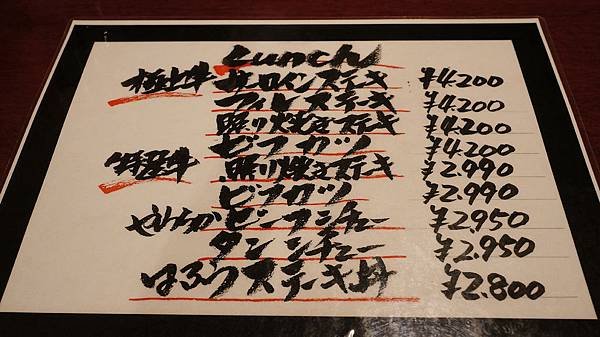 Lunch
極上牛 サーロインステーキ ¥4.200
フィレステーキ ¥4.200
照り焼きステーキ ¥4.200
ビフカツ ¥4.200
特産牛 照り焼きステーキ ¥2.990
ビフカツ ¥2.990
やわらか ビーフシチュー ¥2.950
タンシチュー ¥2.950
はみつステーキ丼 ¥2.800